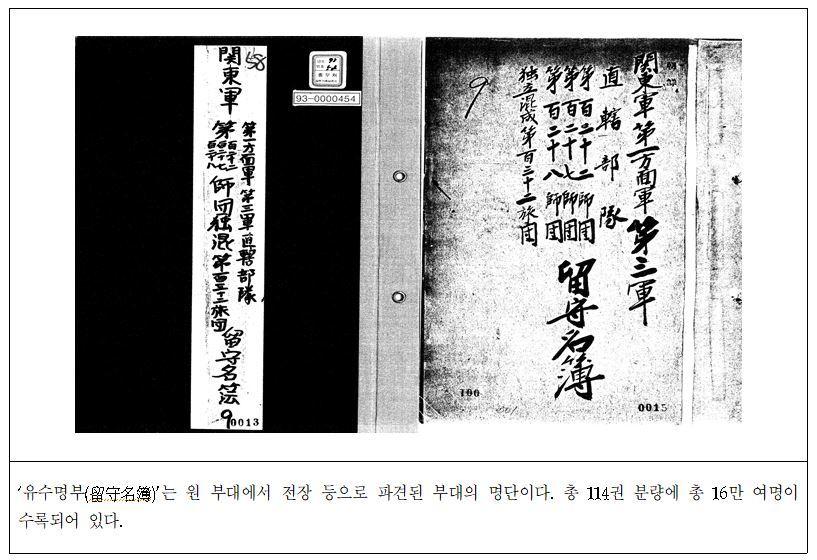 関東軍
58
第一方面軍第三軍直轄部隊
第百二十二
百二十七
百二十八
師団独混第百三十二旅団
留守名簿
9
0013
93-0000454
関東軍第一方面軍第三軍
直轄部隊
第百二十二師団
第百二十七師団
第百二十八師団
独立混成第百三十二旅団
留守名簿
9
100
0015
‘유수명부(留守名簿)’는 원 부대에서 전장 등으로 파견된 부대의 명단이다. 총 114권 분량에 총 16만 여명이
수록되어 있다.